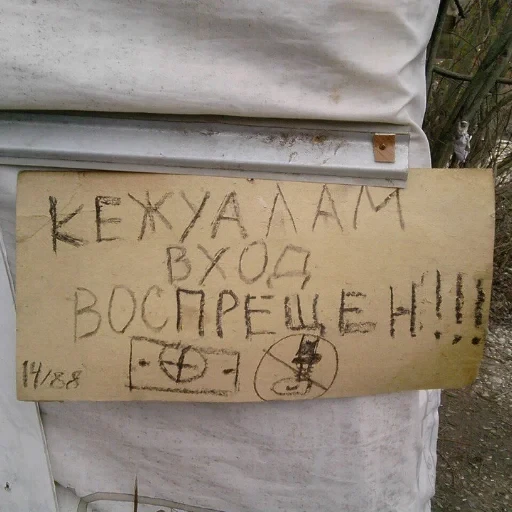 КЕЖУАЛАМ
ВХОД
ВОСПРЕЩЕН!!!
14/88